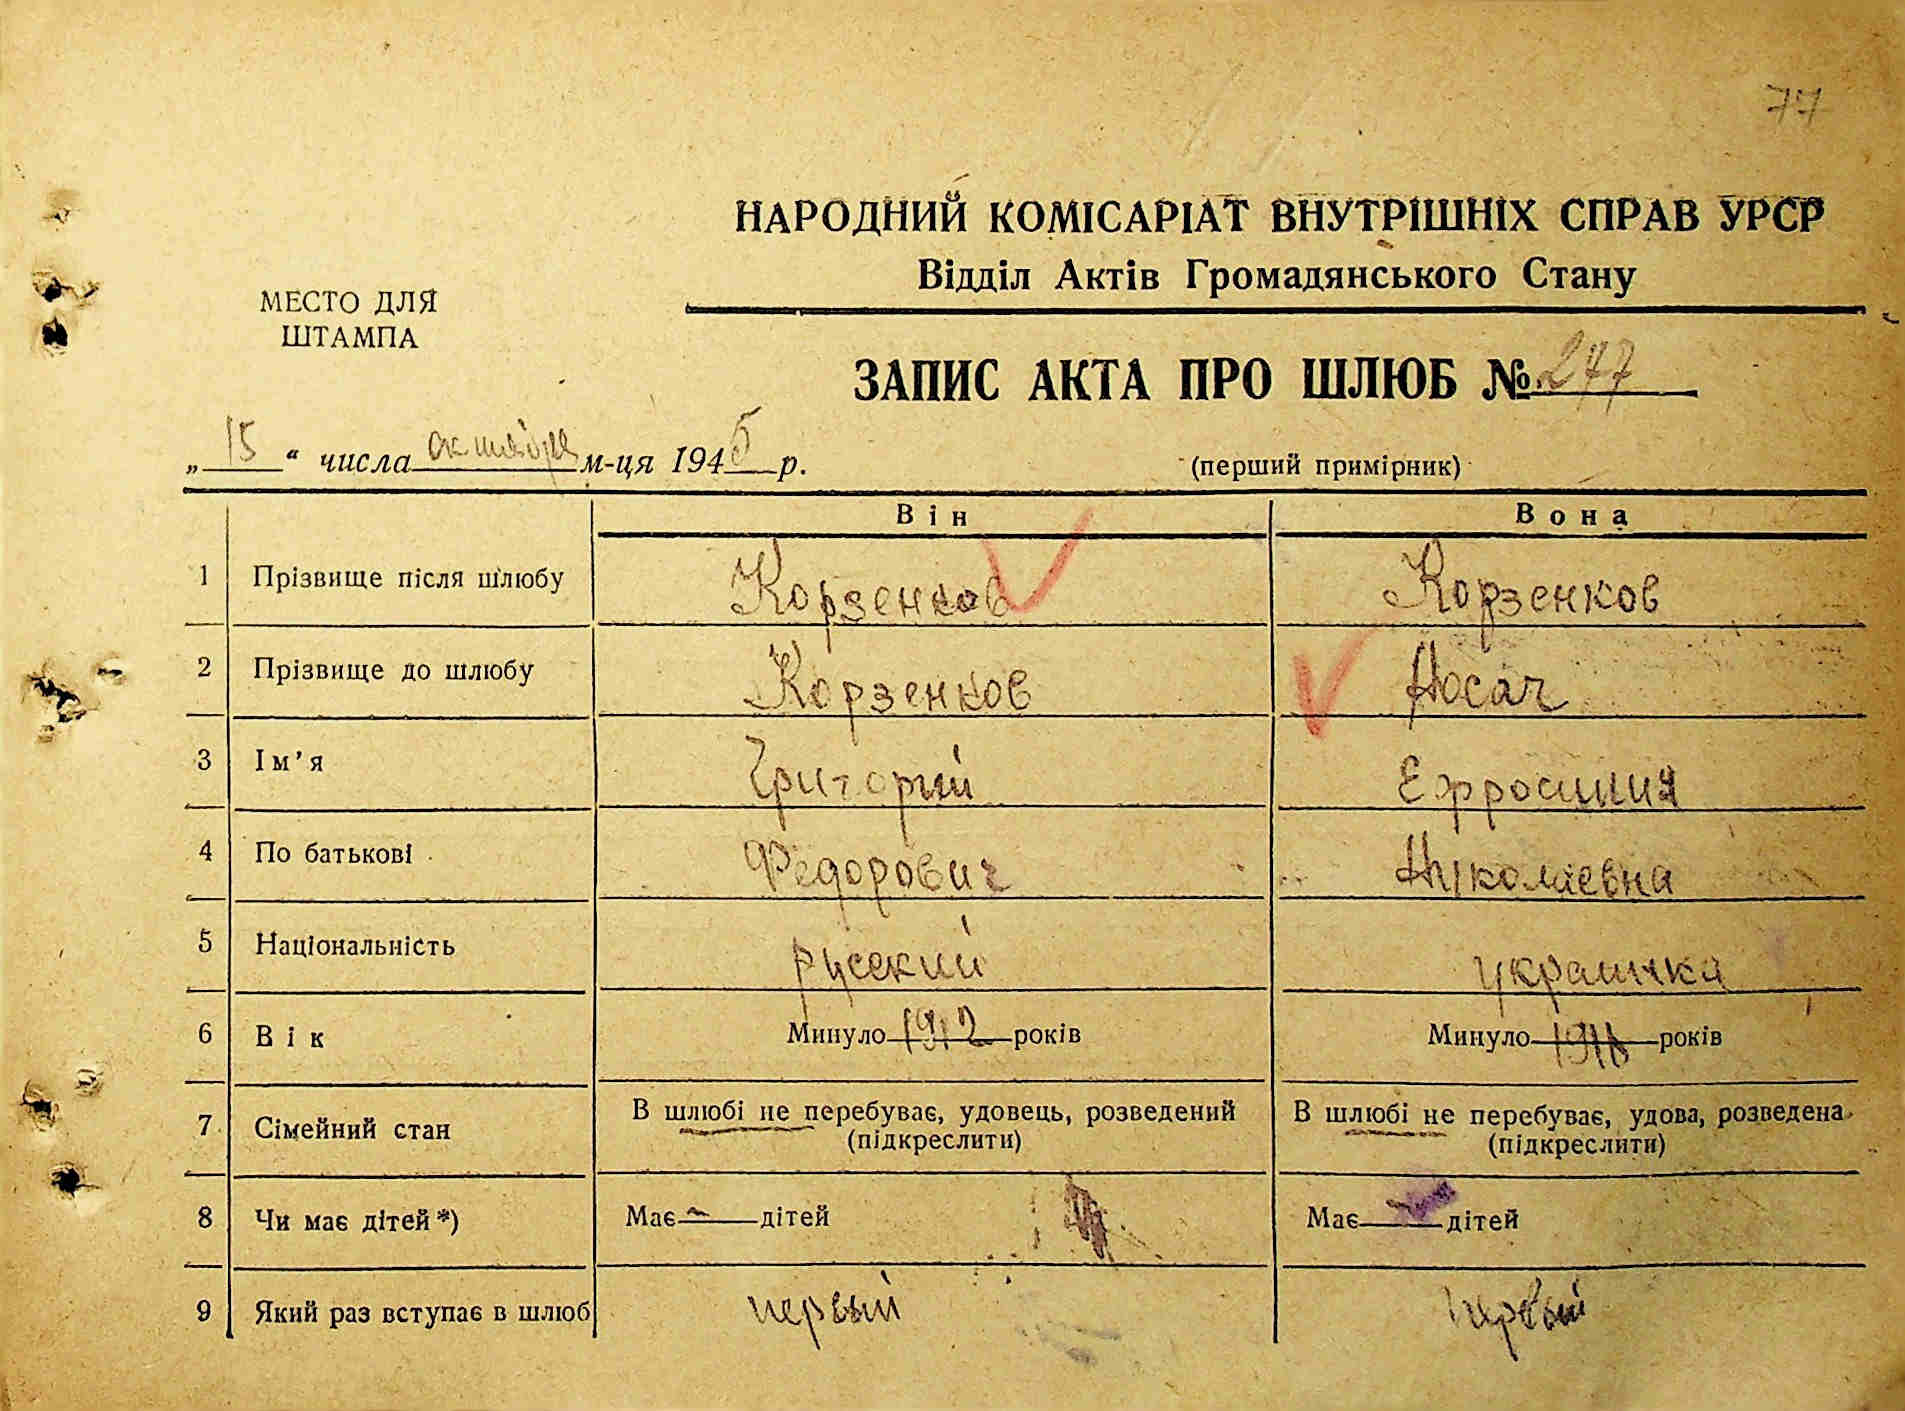 77
НАРОДНИЙ КОМІСАРІАТ ВНУТРІШНІХ СПРАВ УРСР
Відділ Актів Громадянського Стану
МЕСТО ДЛЯ
ШТАМПА
ЗАПИС АКТА ПРО ШЛЮБ № 277
„ 15 “ числа октября м-ця 1945 р.
(перший примірник)
Він Вона
1 Прізвище після шлюбу Корзенков Корзенков
2 Прізвище до шлюбу Корзенков Носач
3 Ім’я Григорий Ефросиния
4 По батькові Федорович Николаевна
5 Національність русский украинка
6 Вік Минуло 1912 років Минуло років
7 Сімейний стан В шлюбі не перебуває, удовець, розведений В шлюбі не перебуває, удова, розведена
(підкреслити) (підкреслити)
8 Чи має дітей*) Має — дітей Має — дітей
9 Який раз вступає в шлюб первый первый